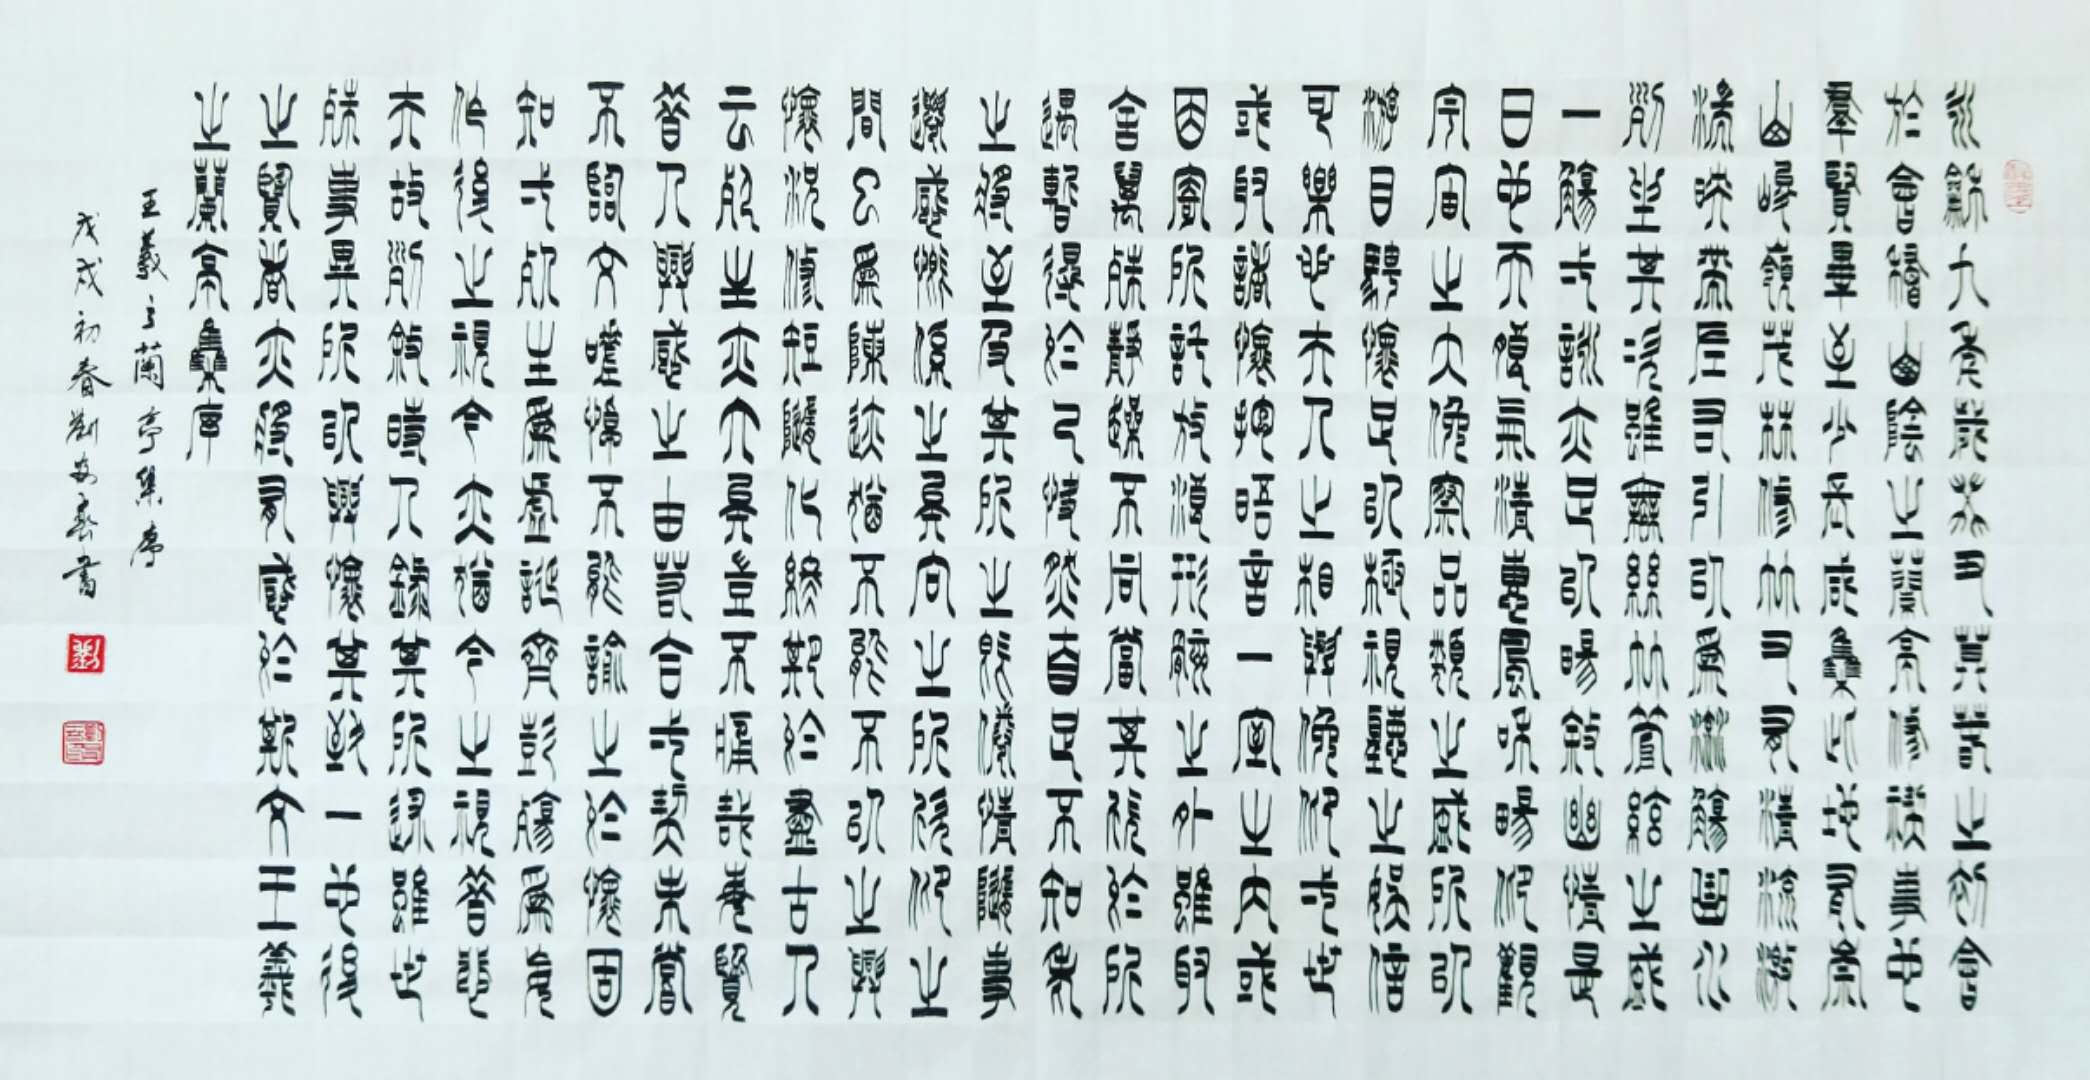 永龢九年歲癸丑暮春之初會
於會稽山陰之蘭亭修禊事也
羣賢畢至少長咸集此地有崇
山峻領茂林修竹又有清流激
湍映帶左右引以為流觴曲水
列坐其次雖無絲竹管絃之盛
一觴一詠亦足以暢敘幽情是
日也天朗氣清惠風和暢仰觀
宇宙之大俛察品類之盛所以
游目騁懷足以極視聽之娛信
可樂也夫人之相與俛仰一世
或取諸懷抱晤言一室之內或
因寄所託放浪形骸之外雖取
舍萬殊靜躁不同當其欣於所
遇暫得於己快然自足不知老
之將至及其所之既倦情隨事
遷感慨係之矣向之所欣仰之
間以為陳迹猶不能不以之興
懷況修短隨化終期於盡古人
云死生亦大矣豈不痛哉每覽
昔人興感之由若合一契未嘗
不臨文嗟悼不能諭之於懷固
知一死生為虛誕齊彭殤為妄
作後之視今亦猶今之視昔悲
夫故列敘時人錄其所述雖世
殊事異所以興懷其致一也後
之覽者亦將有感於斯文王羲
之蘭亭集序
王羲之蘭亭集序
戊戌初春劉安書
劉